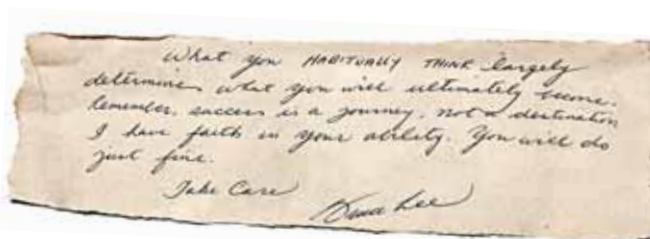 What you HABITUALLY THINK largely
determines what you will ultimately become.
Remember, success is a journey, not a destination
I have faith in your ability. You will do
just fine.
Take Care
Bruce Lee